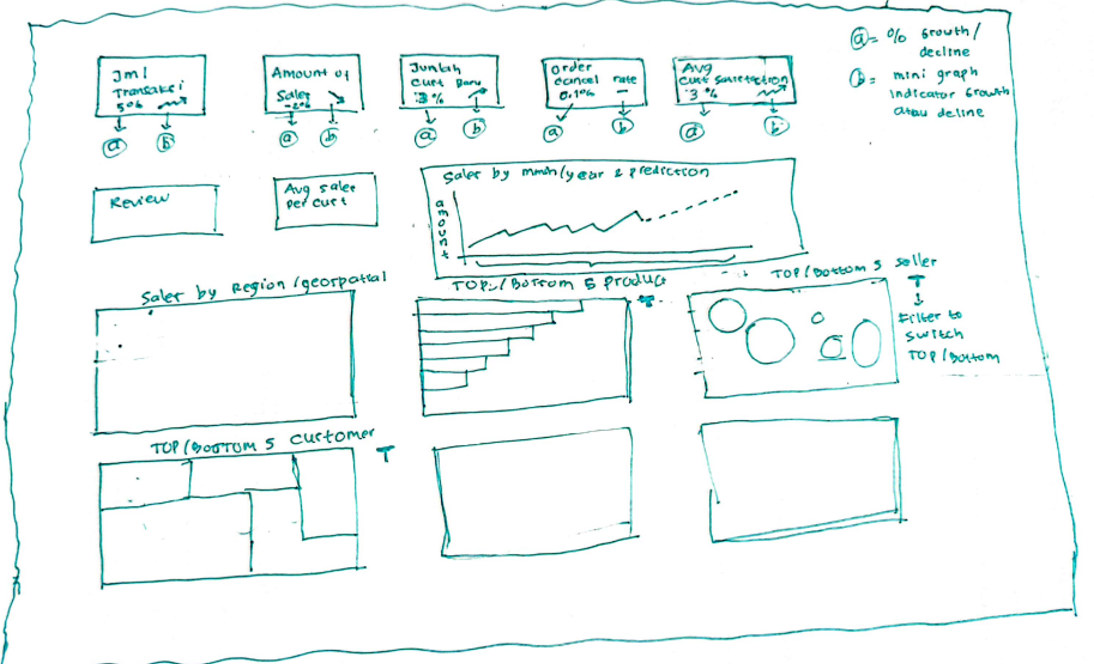 Jml
Transaksi
5%
Amount of
Sales
-20%
Jumlah
Cust Baru
3%
Order
cancel rate
0.1%
Avg
Cust Satisfaction
3%
a
b
a
b
a
b
a
b
a
b
a = % Growth/
decline
b = mini graph
Indicator Growth
atau decline
Review
Avg sales
per cust
Sales by mmm/year & prediction
amount
Sales by Region/geospatial
TOP/Bottom 5 Product
T
TOP/Bottom 5 seller
T
Filter to
switch
TOP/Bottom
TOP/BOTTOM 5 customer
T